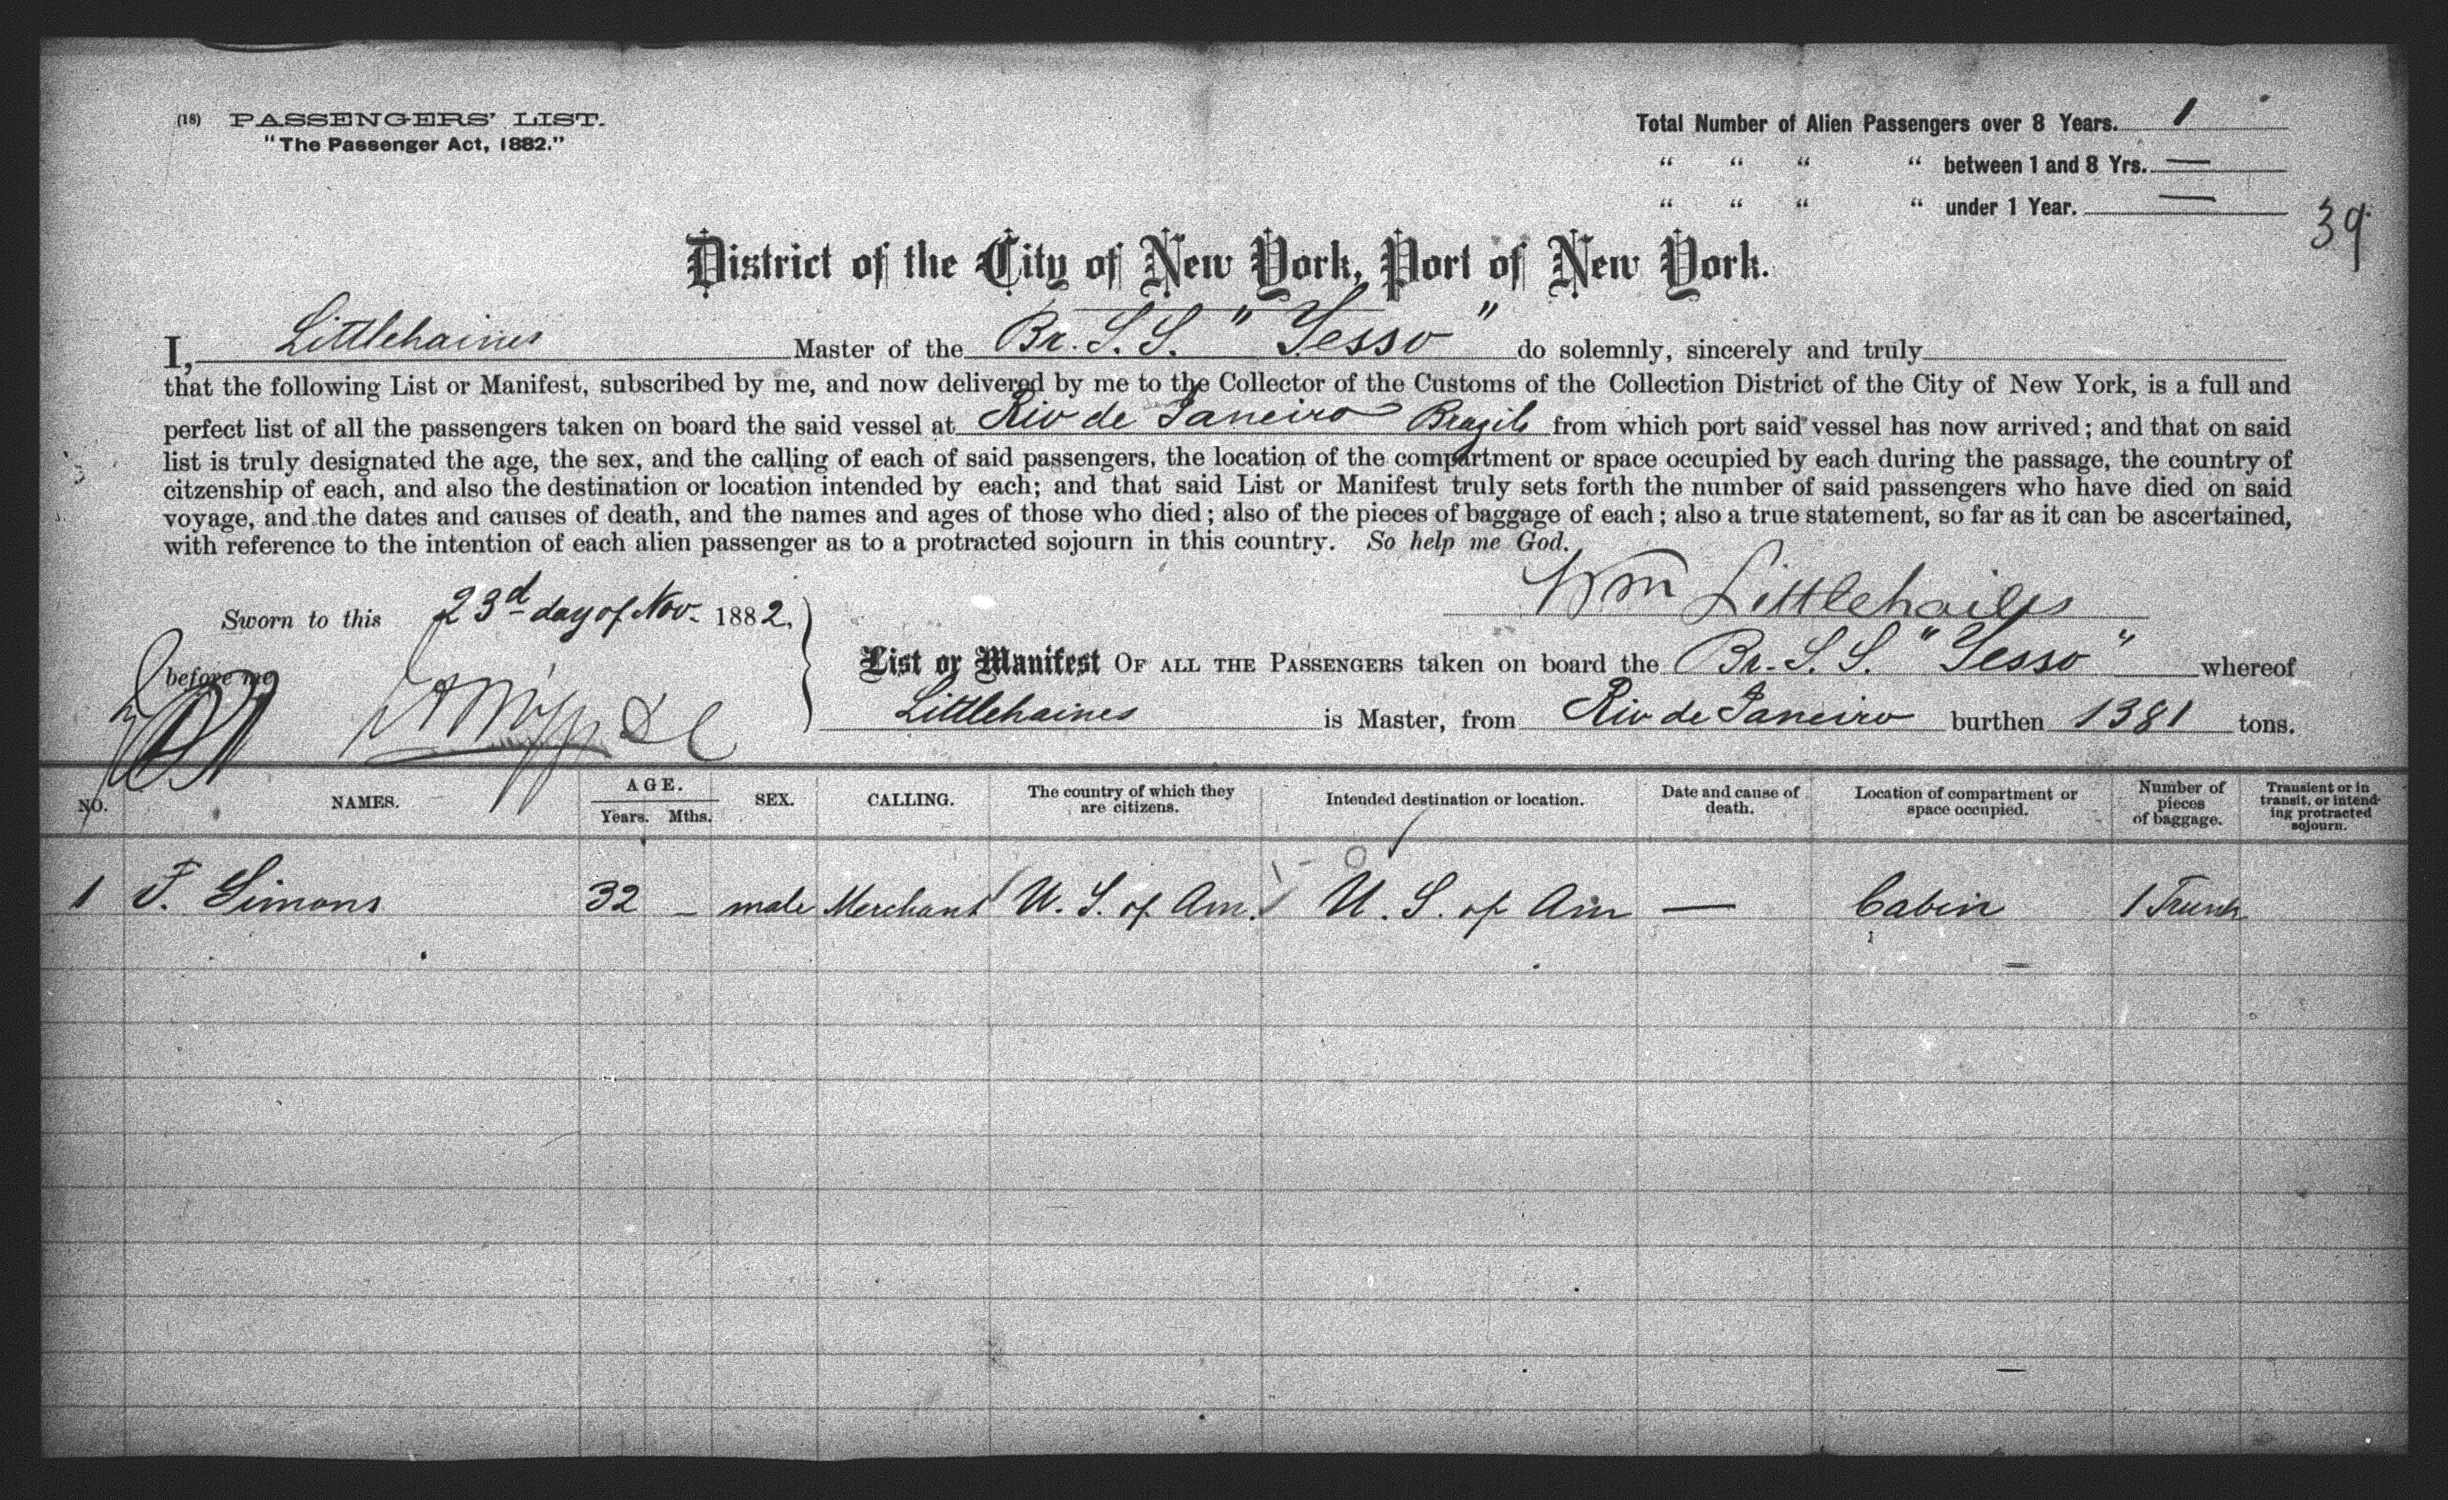 (18) PASSENGERS' LIST.
"The Passenger Act, 1882."
Total Number of Alien Passengers over 8 Years. 1
" " " " between 1 and 8 Yrs. —
" " " " under 1 Year. —
39
District of the City of New York, Port of New York.
I, Littlehaines Master of the Br. S. S. "Yesso" do solemnly, sincerely and truly
that the following List or Manifest, subscribed by me, and now delivered by me to the Collector of the Customs of the Collection District of the City of New York, is a full and
perfect list of all the passengers taken on board the said vessel at Rio de Janeiro Brazils from which port said vessel has now arrived; and that on said
list is truly designated the age, the sex, and the calling of each of said passengers, the location of the compartment or space occupied by each during the passage, the country of
citzenship of each, and also the destination or location intended by each; and that said List or Manifest truly sets forth the number of said passengers who have died on said
voyage, and the dates and causes of death, and the names and ages of those who died; also of the pieces of baggage of each; also a true statement, so far as it can be ascertained,
with reference to the intention of each alien passenger as to a protracted sojourn in this country. So help me God.
Wm Littlehailes
Sworn to this 23d day of Nov. 1882,
before me
List or Manifest OF ALL THE PASSENGERS taken on board the Br. S. S. "Yesso" whereof
Littlehaines is Master, from Rio de Janeiro burthen 1381 tons.
NO. NAMES. AGE. Years. Mths. SEX. CALLING. The country of which they are citizens. Intended destination or location. Date and cause of death. Location of compartment or space occupied. Number of pieces of baggage. Transient or in transit, or intending protracted sojourn.
1 F. Simons 32 – male Merchant U. S. of Am. U. S. of Am — Cabin 1 Trunk